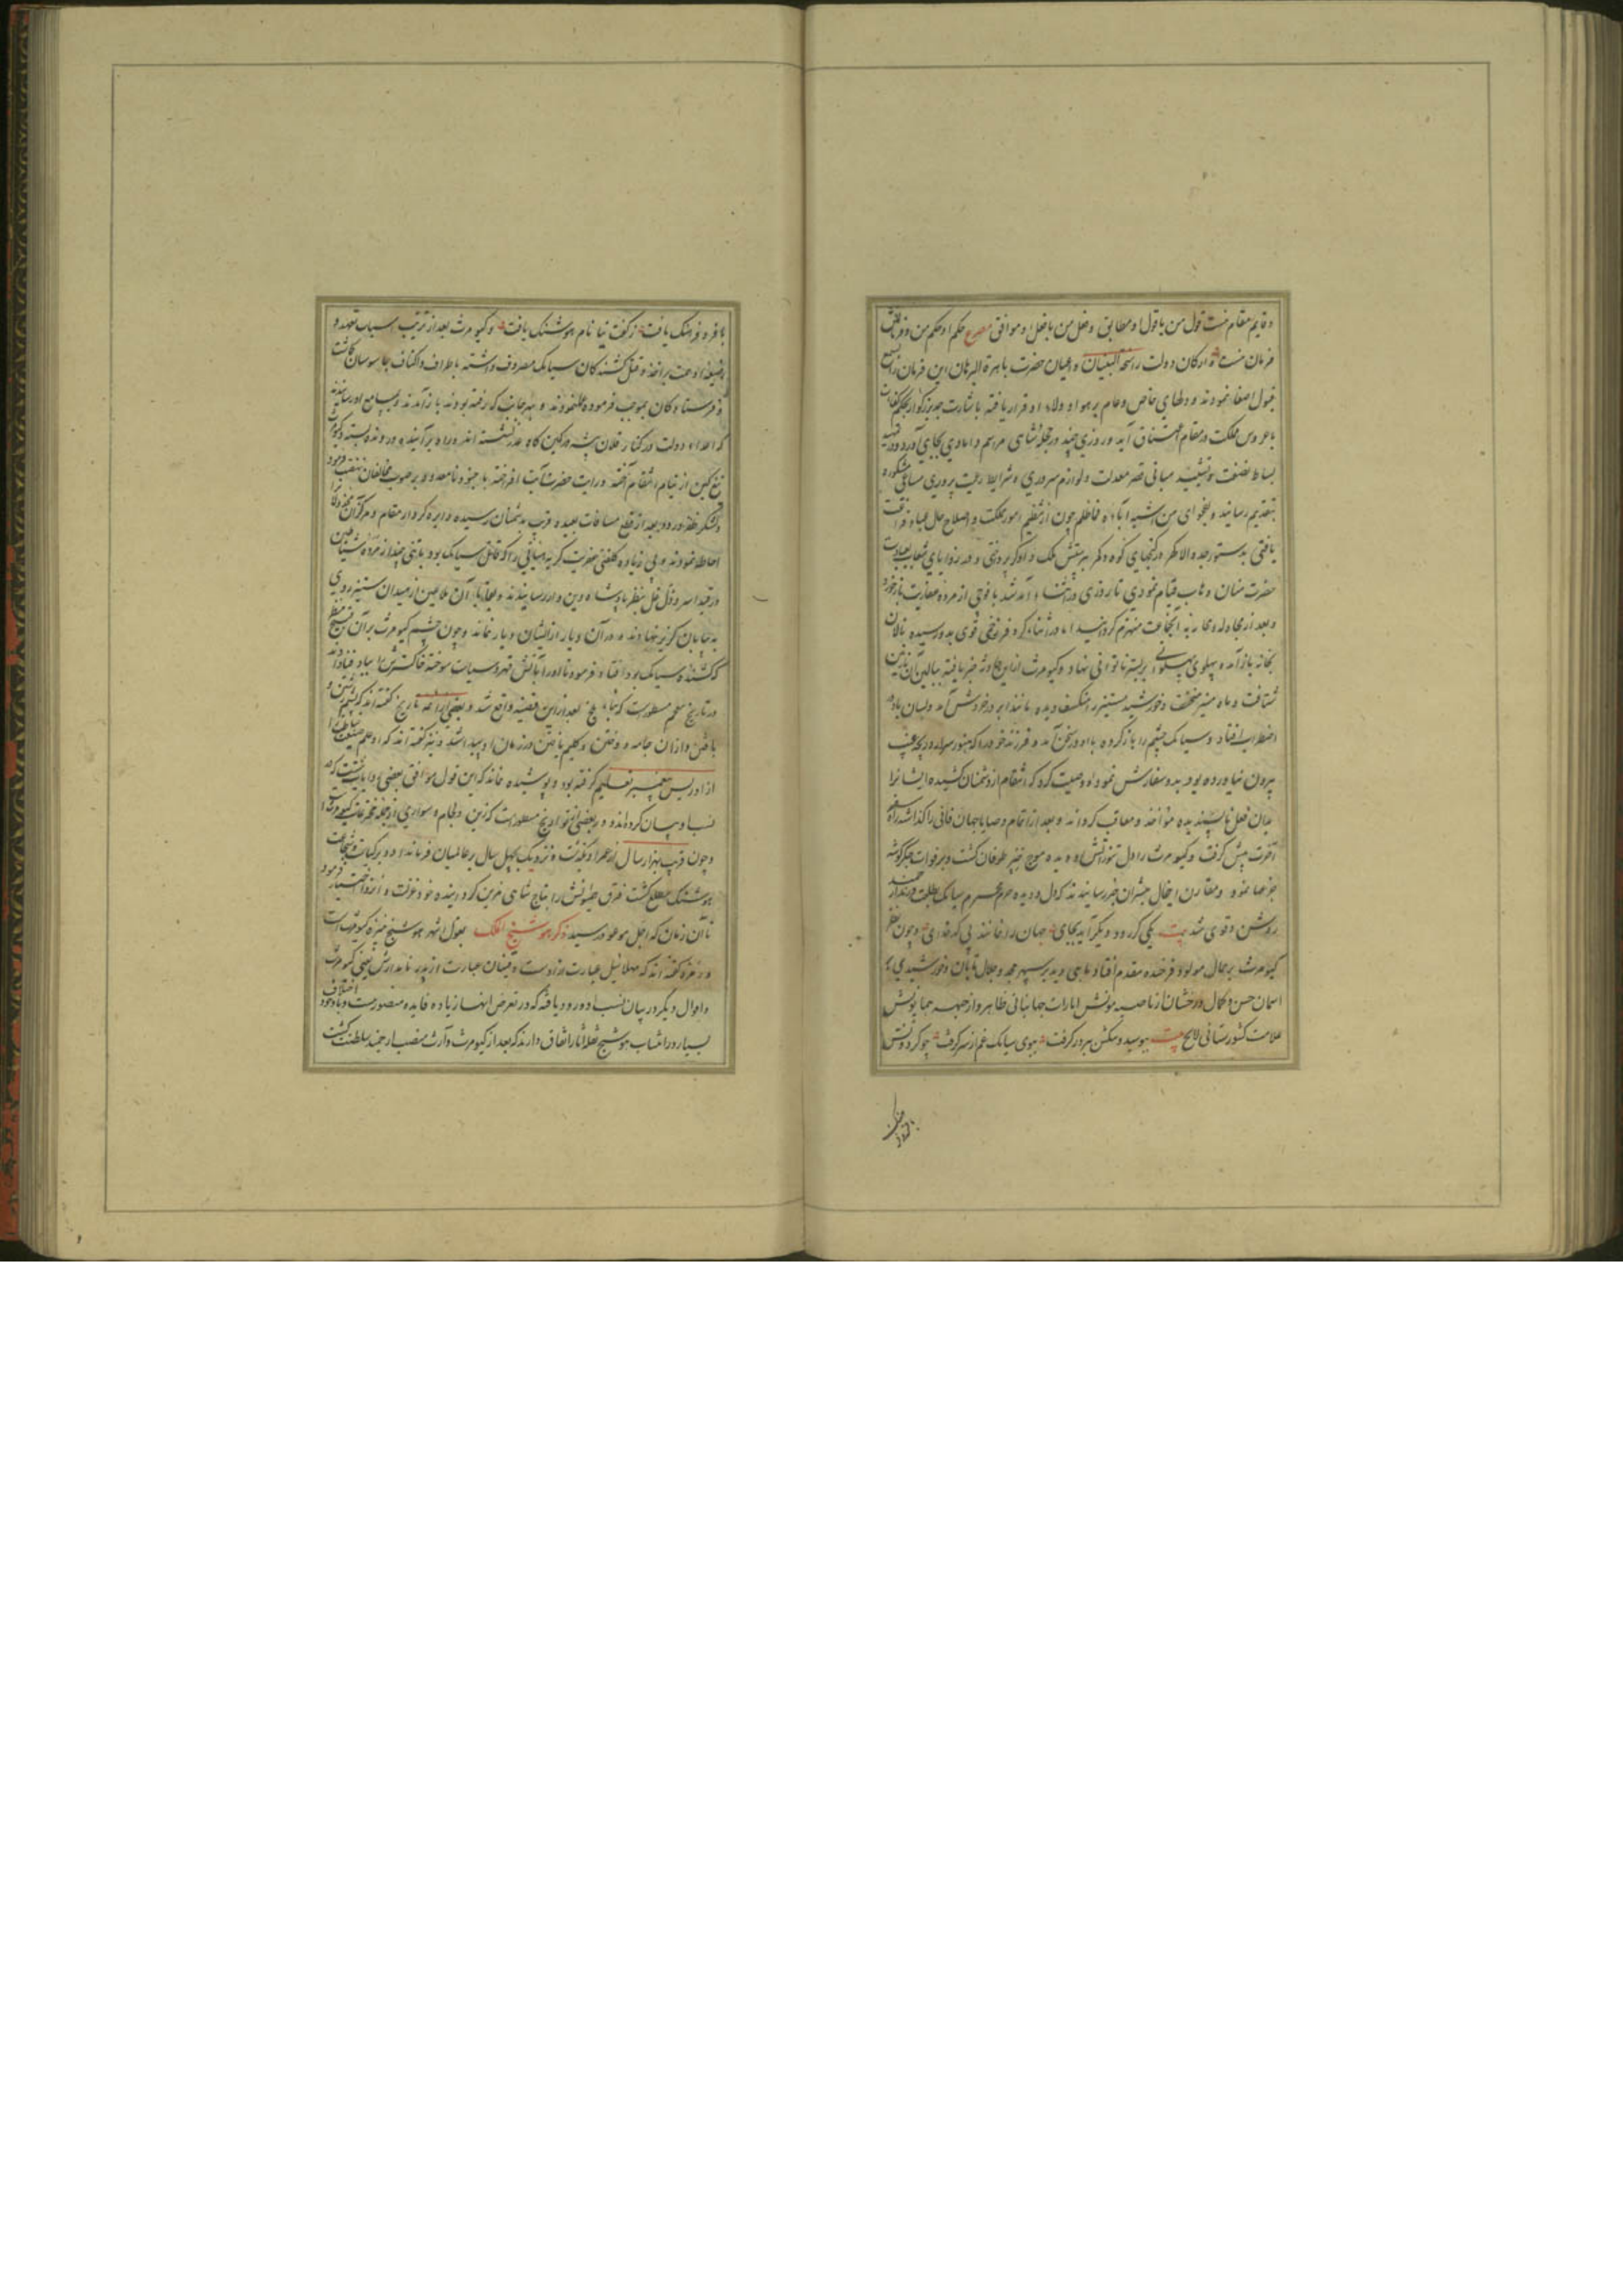 و قایم مقام منست قول من با قول او مطابق و فعل من با فعل او موافق مصرع حکم او حکم من و فرمانش
فرمان منست ارکان دولت راسخة البنیان و اعیان حضرت باهرة البرهان این فرمان را بسمع
قبول اصغا نمودند و دلهای خاص و عام بر هوا و ولاء او قرار یافته باشارت جد بزرگوار
با عروس مملکت در مقام اعتناق آمد و روزی چند در حجله شاهی مراسم دامادی بجای آورد و در تمهید
بساط نصفت و تشیید مبانی قصر معدلت و لوازم سروری و شرایط رعیت پروری مساعی مشکوره
بتقدیم رسانید و بفحوای من اشبه اباه فما ظلم چون از تنظیم امور مملکت و اصلاح حال عباد فراغت
یافتی بدستور جد والا گهر در کنجهای کوه و کمر بپرستش ملک داور پرداختی و در زوایای شعاب بعبادت
حضرت منان وهاب قیام نمودی تا روزی در اثناء آمد شد با فوجی از مرده عفاریت باز خورد
و بعد از مجادله و محاربه آنجماعت منهزم گردانید اما در اثناء کر و فر زخمی قوی بدو رسیده نالان
بخانه باز آمد و پهلوی پهلوانی بر بستر ناتوانی نهاد و کیومرث از این حادثه خبر یافته ببالین آن نازنین
شتافت و ماه منیر منخسف و خورشید مستنیر را منکسف دیده مانند ابر در خروش آمد و بسان باد در
اضطراب افتاد و سیامک چشم را باز کرده با او در سخن آمد و فرزند خود را که هنوز سر از دریچه غیب
بیرون نیاورده بود بدو سفارش نمود و وصیت کرد که انتقام از دشمنان کشیده ایشانرا
بدان فعل ناپسندیده مؤاخذ و معاقب گرداند و بعد از اتمام وصایا جهان فانی را گذاشته راه
آخرت پیش گرفت و کیومرث را دل تنور آتش و دیده موج خیز طوفان گشت و بر فوات جگر گوشه
جزعها نمود و مقارن اینحال مبشران خبر رسانیدند که دل و دیده حرم محترم سیامک بطلعت فرزند ارجمند
روشن و قوی شد بیت یکی گر رود دیگر آید بجای جهان را نمانند بی کدخدای و چون نظر
کیومرث بر جمال مولود فرخنده مقدم افتاد ماهی دید بر سپهر مجد و جلال تابان و خورشیدی بر
آسمان حسن و کمال درخشان از ناصیه میمونش امارات جهانبانی ظاهر و از جبهه همایونش
علامت کشورستانی لایح بیت ببوسید و تنگش ببر در گرفت ببوی سیامک غم از سر گرفت چو کردونش
با فره و فرهنگ یافت ز گفت نیا نام هوشنگ یافت و کیومرث بعد از ترتیب اسباب تعهد و
همت بر اخذ و قتل کشندکان سیامک مصروف داشته باطراف و اکناف جاسوسان گماشت
و فرستادگان بموجب فرموده عمل نمودند و بهر جانب که رفته بودند باز آمدند و بمسامع او رسانیدند
که اعداء دولت در کنار فلان پشه در کمین گاه غدر نشسته اند و راه بر آینده و رونده بسته و کیومرث
تیغ کین از نیام انتقام آخته و رایت حضرت آیت افراخته با جنود نامعدود بر صوب مخالفان نهضت فرمود
و لشکر ظفر ورود بعد از قطع مسافات بعیده قریب بدشمنان رسیده دایره کردار مقام و مرکز آن
احاطه نمودند و بی زیاده کلفتی عفریت کریه هیأتی را که قاتل سیامک بود با تنی چند از مرده شیاطین
در قید اسر و ذل غل بنظر پادشاه دین دار رسانیدند و بقایاء آن ملاعین از میدان ستیز روی
به بیابان گریز نهادند و در آن دیار از ایشان دیار نماند و چون چشم کیومرث بر آن قبیح منظر
که کشنده سیامک بود افتاد فرمود تا او را بآتش قهر و سیاست سوخته خاکسترش بباد فنا دادند
در تاریخ معجم مسطورست که بناء بلخ بعد از این قضیه واقع شد و بعضی از ائمه تاریخ گفته اند که پشم رشتن و
بافتن و از آن جامه دوختن و گلیم بافتن در زمان او پیدا شد و نیز گفته اند که او علم صنعت خیاطت را
از ادریس پیغمبر تعلیم گرفته بود و پوشیده نماند که این قول موافق بعضی روایاتست که در
نسب او بیان کرده اند و در بعضی از تواریخ مسطورست که زین و لجام و سواری از جمله مخترعات کیومرث است
و چون قریب بهزار سال از عمر او بگذشت و نزدیک بچهل سال بر عالمیان فرماند داد و بر کیاست و شجاعت
هوشنگ مطلع گشت فرق همیونش را بتاج شاهی مزین گردانیده خود عزلت و انزوا اختیار فرمود
تا آن زمان که اجل موعود رسید ذکر هوشنج الملک بقول اشهر هوشنج نبیره کیومرث است
و در غره گفته اند که مهلائیل عبارت از اوست و قینان عبارت از پدر نامدارش یعنی کیومرث
و اقوال دیگر در بیان نسب او ورود یافته که در تعرض انها زیاده فایده متصور نیست و با وجود اختلاف
بسیار در انتساب هوشنج نقله آثار اتفاق دارند که بعد از کیومرث وارث منصب ارجمند سلطنت گشت